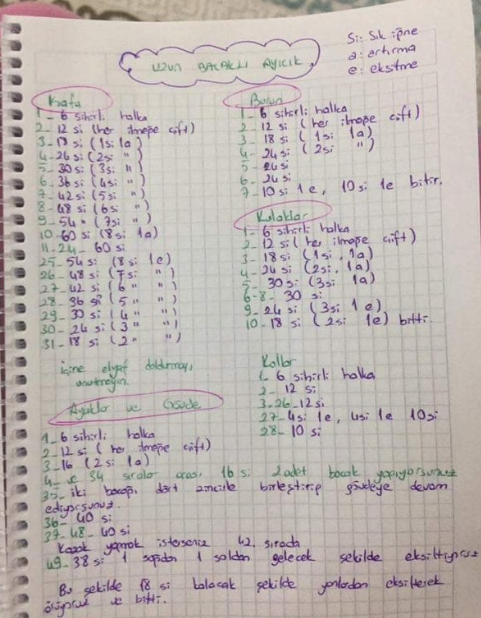 UZUN BACAKLI AYICIK
Si: Sık iğne
a: artırma
e: eksiltme
Kafa
1- 6 sihirli halka
2- 12 si (her ilmeğe çift)
3- 18 si (1si 1a)
4- 24 si (2si ")
5- 30 si (3si ")
6- 36 si (4si ")
7- 42 si (5si ")
8- 48 si (6si ")
9- 54 " (7si ")
10- 60 si (8si 1a)
11-24- 60 si
25- 54 si (8si 1e)
26- 48 si (7si " ")
27- 42 si (6 " " ")
28- 36 si (5 " " ")
29- 30 si (4 " " ")
30- 24 si (3 " " ")
31- 18 si (2 " " ")
içine elyaf doldurmayı
unutmayın.
Burun
1- 6 sihirli halka
2- 12 si (her ilmeğe çift)
3- 18 si (1si 1a)
4- 24 si (2si ")
5- 24 si
6- 24 si
7- 10 si 1e, 10 si 1e bitir.
Kulaklar
1- 6 sihirli halka
2- 12 si (her ilmeğe çift)
3- 18 si (1si, 1a)
4- 24 si (2si, 1a)
5- 30 si (3si 1a)
6-8- 30 si
9- 24 si (3si 1e)
10- 18 si (2si 1e) bitti.
Kollar
1- 6 sihirli halka
2- 12 si
3-26- 12 si
27- 4si 1e, 4si 1e 10si
28- 10 si
Ayaklar ve Gövde
1- 6 sihirli halka
2- 12 si (her ilmeğe çift)
3- 16 (2si 1a)
4- ve 34 sıralar arası 16 si 2 adet bacak yapıyorsunuz
35- iki bacağı dört zincirle birleştirip gövdeye devam
ediyorsunuz.
36- 40 si
37-48- 40 si
yapmak isterseniz 42. sırada
49- 38 si 1 sağdan 1 soldan gelecek şekilde eksiltiyoruz
Bu şekilde 18 si kalacak şekilde yanlardan eksilterek
örüyoruz ve bitti.